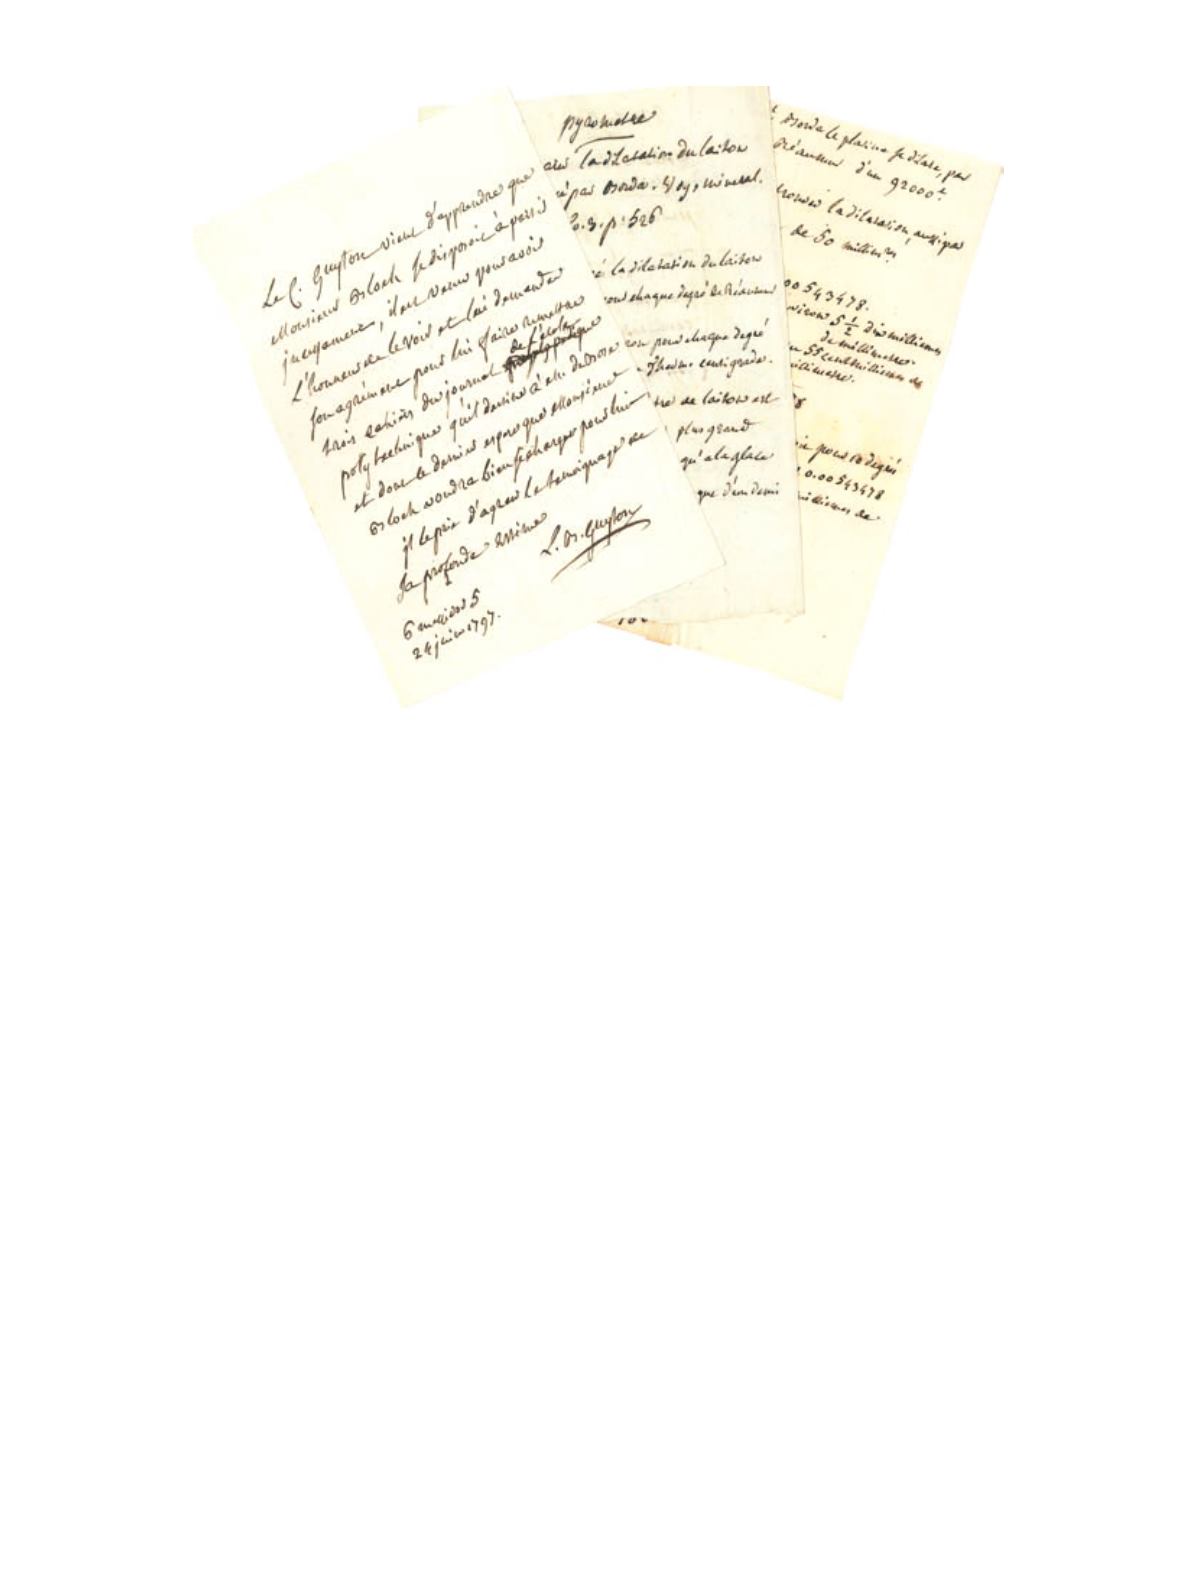 Le C. Guyton vient d'apprendre que
Monsieur Bloch se disposoit à partir
incessament, il est venu pour avoir
l'honneur de le voir et lui demander
son agrément pour lui faire remettre
trois cahiers du journal de l'école
polytechnique qu'il destine à
et dont le dernier espere que Monsieur
Bloch voudra bien se charger pour lui
il le prie d'agreer le temoignage de
sa profonde estime
L. B. Guyton
6 messidor 5
24 juin 1797.
pyrometre
la dilatation du laiton
par Borda. Voy. mineral.
p. 526
la dilatation du laiton
pour chaque degré de Réaumur
pour chaque degré
Thermo centigrade.
de laiton est
plus grand
qu'a la glace
que d'un demi
Borda le platine se dilate, par
Réaumur d'un 92000e
trouver la dilatation aussi par
de 50 millim.
00543478.
5 ½ dix milliemes
de millimetre.
55 centmilliemes de
millimetre.
pour 10 degrés
0.00543478
milliemes de